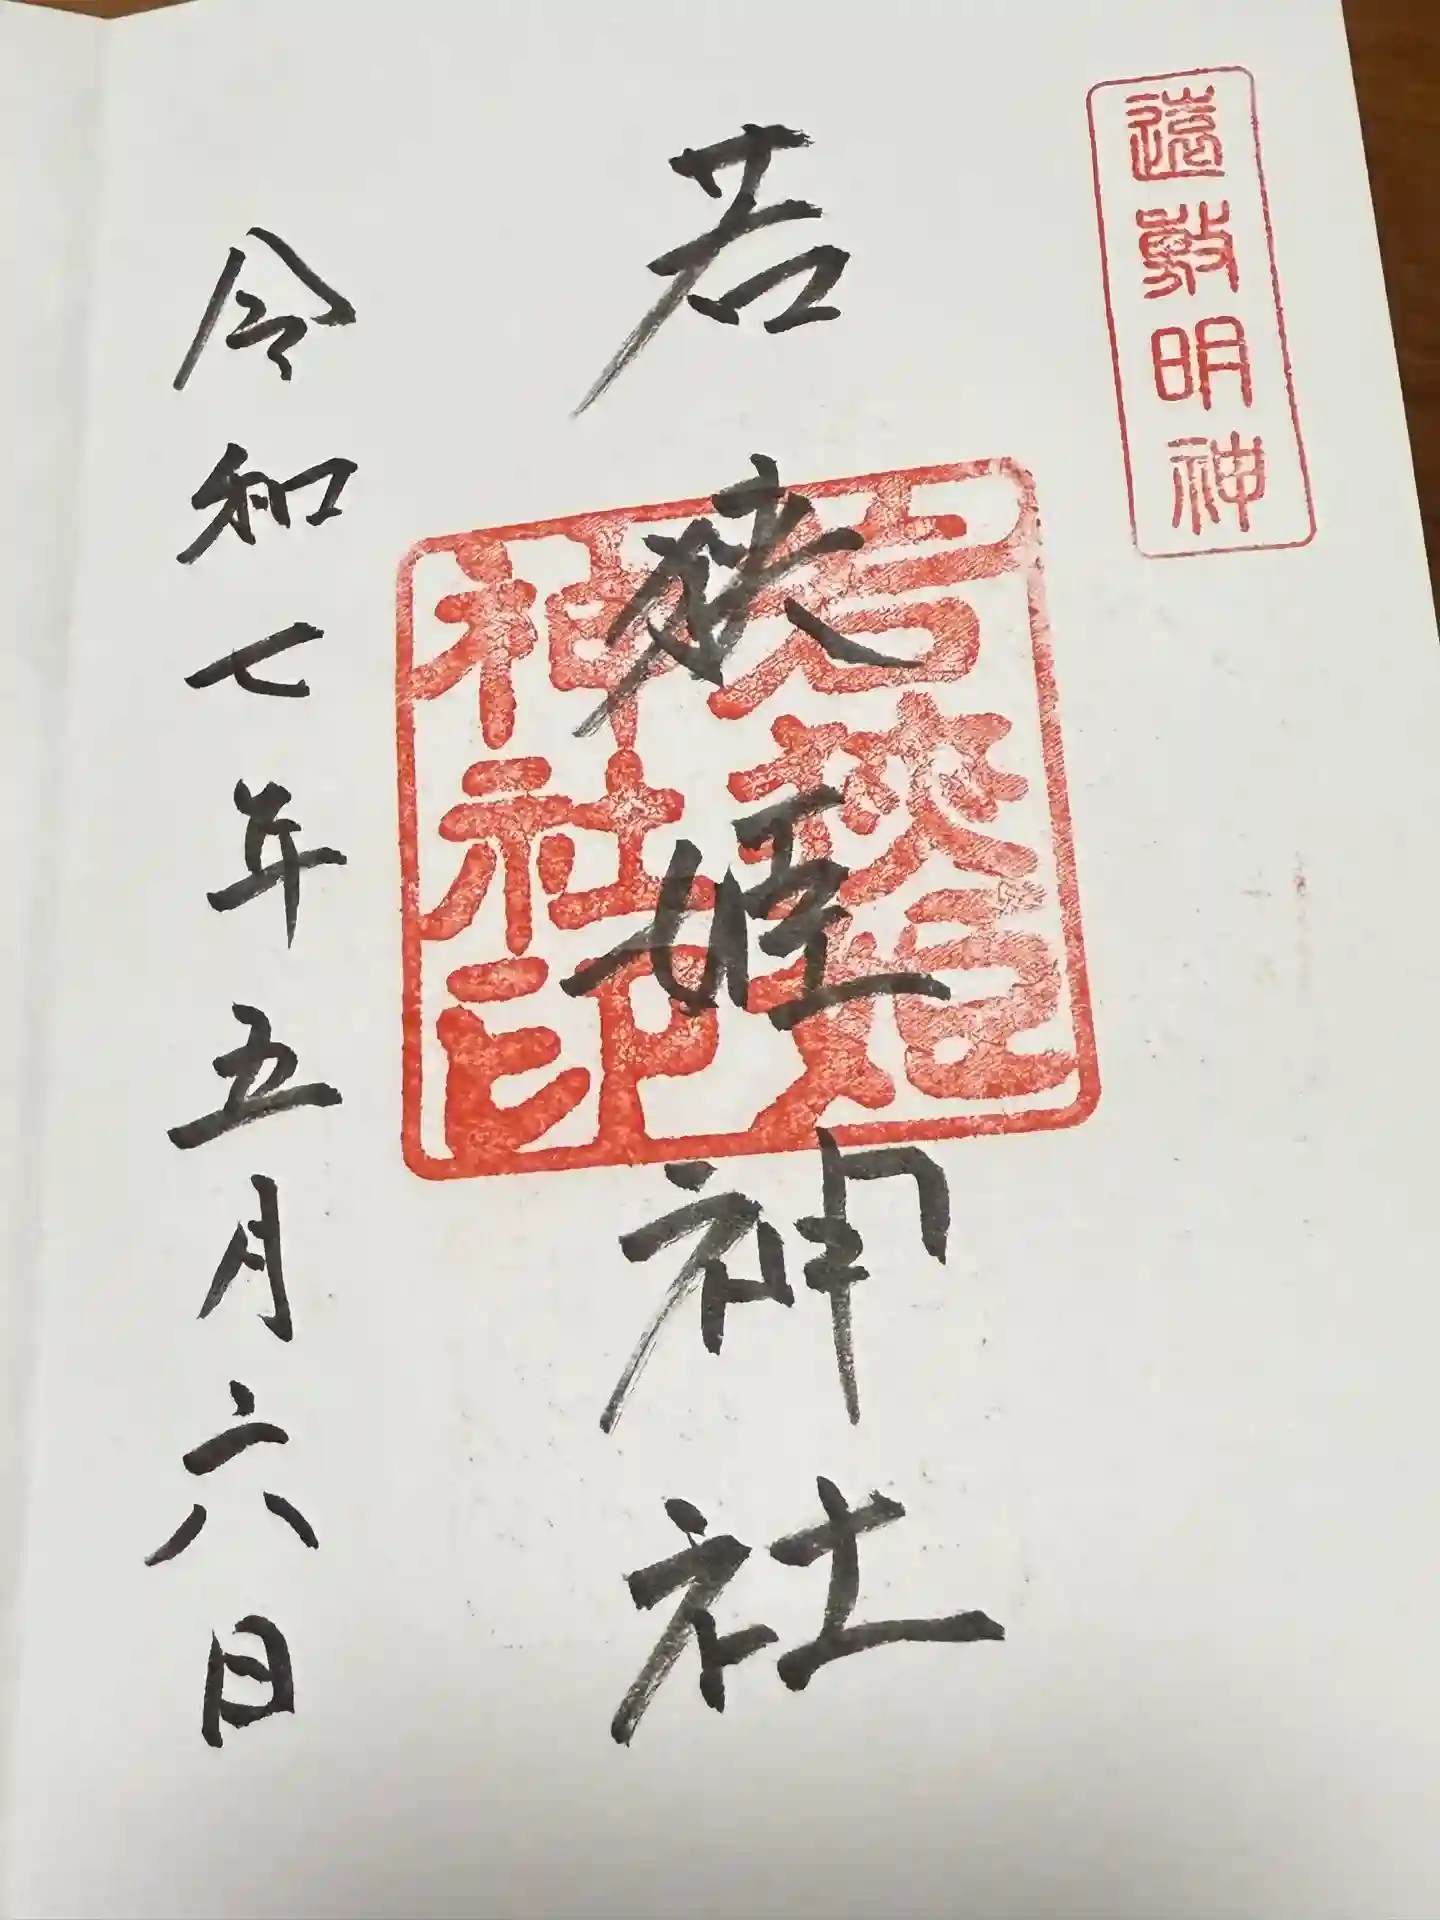 遠敷明神
若狭姫神社
若狹姫
神社印
令和七年五月六日